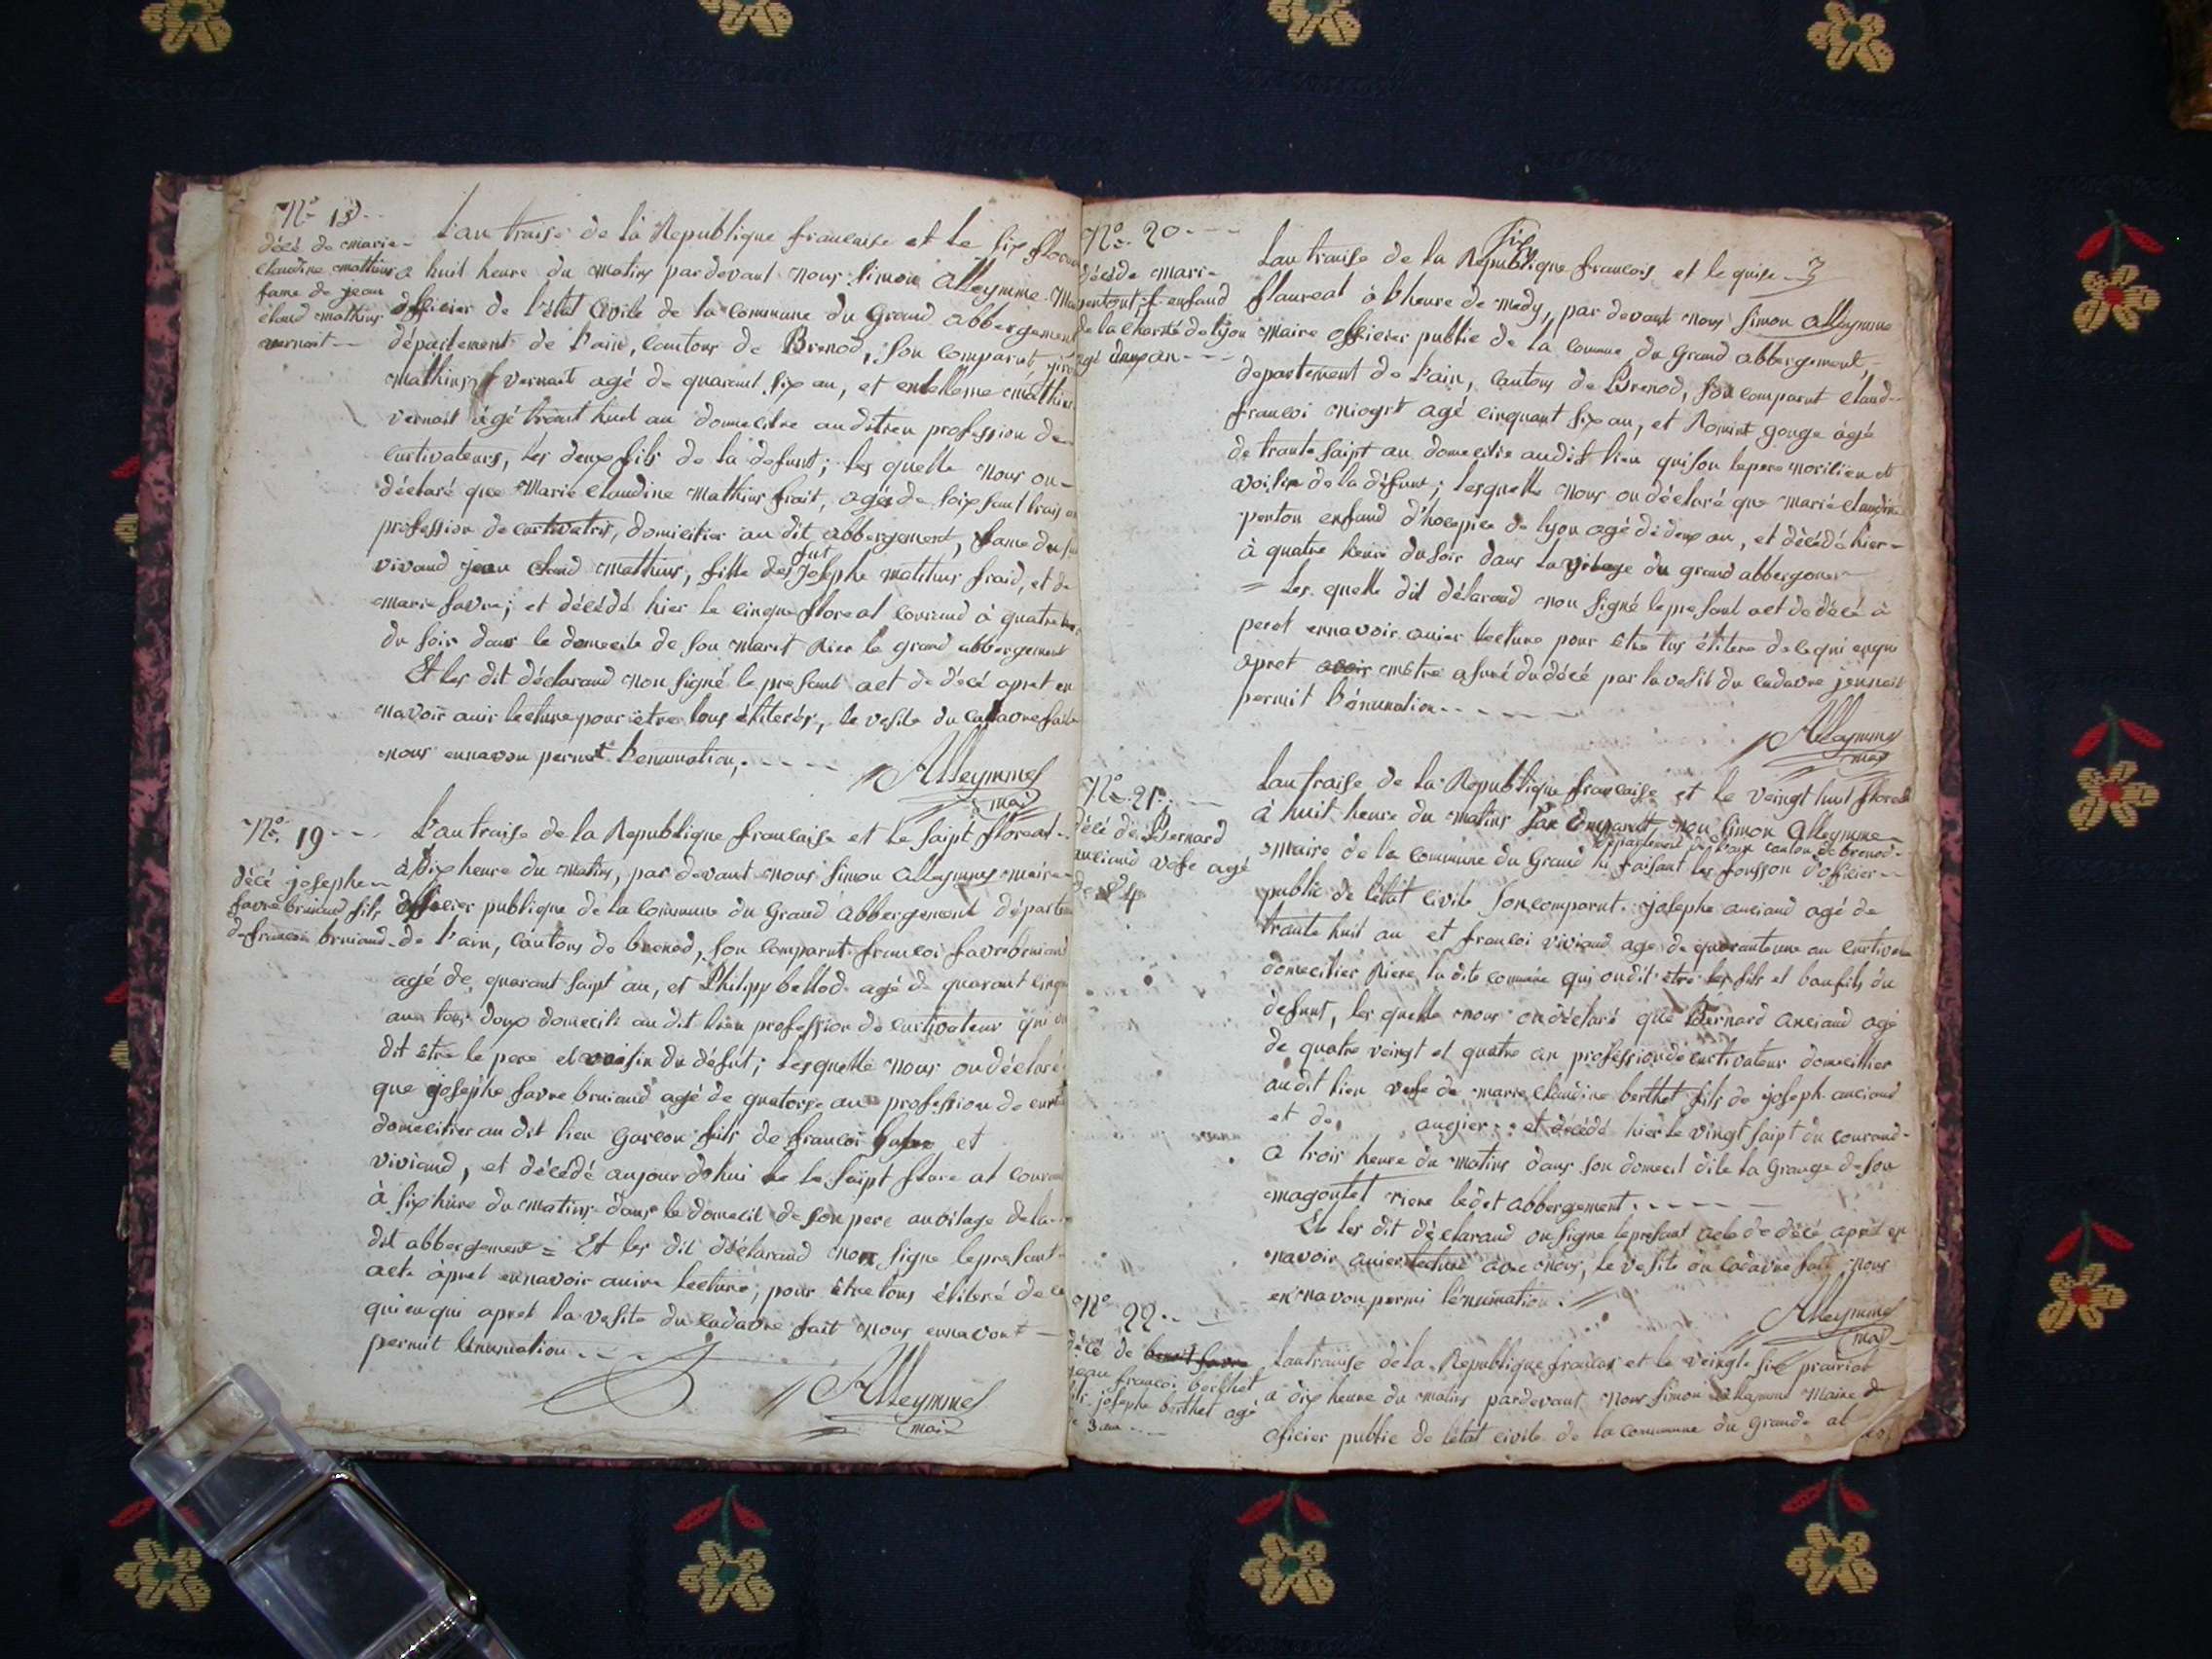 N.o 18
décé de marie
claudine mathius
fame de jean
claud mathius
vernait
L'an traise de la Republique francaise et le six
à huit heure du matins pardevant nous simon Alleymme
officier de l'état civile de la commune du Grand abbergement
département de l'ain, cantons de Brenod, son comparut
mathius vernait agé de quarant six an, et
vernait âgé trant huit an domecilre auditlieu profession de
curtivateurs, les deux fils de la defunt; les quelle nous on
déclaré que Marie claudine Mathius frait, agés de soixsant trais
profession de curtivatris, domicilier au dit abbergement, fame du
vivand jean claud mathius, fille des fut josephe mathius fraid, et de
marie favre; et décédé hier le cinque floreal courand à quatre
du soir dans le domecile de son marit Rier le grand abbergement
Et les dit déclarand non signé le presant act de décé apret en
navoir auir lecture pour être tous éliterés, le vesite du cadavre fait
nous ennavon permit l'enumation,
Alleymme
mai
N.o 19
décé josephe
favre bruiand fils
de francois bruiand
L'an traise de la Republique francaise et le saipt floreal
à dix heure du matins, par devant nous simon Alleymme maire
officier publique de la commune du Grand Abbergement départem
de l'ain, cantons de brenod, son comparut francoi favre bruiand
agé de quarant saipt an, et Philipp ballod agé de quarant cinq
an tous doux domecili au dit lieu profession de curtivateur qui on
dit être le pere et voisin du défut; lesquelle nous on déclaré
que josephe favre bruiand agé de quatorse an profession de
domecilier au dit lieu garcon fils de francoi et
viviand, et décédé aujourdohui le le saipt flore al courand
à six hure du matins dans le domecil de son pere au vilage dela
dit abbergement = Et les dit déclarand non signe le presant
acte àpret ennavoir auire lecture, pour être tous éliteré de ce
qui en qui apret la vesite du cadavre fait nous ennavont
permit l'enumation
Alleymme
mai
N.o 20
décé de marie
penton f. enfand
de la charité de lyon
agé deux an
L'an traise de la Republique francois et le quise
flaureal à l'heure de medy, par devant nous simon Alleymme
maire officier public de la commune du Grand abbergement,
departement de l'ain, cantons de Brenod, son comparut claud
francoi miogrt agé cinquant six an, et Romint gouge àgé
de trante saipt an domecilie audit lieu quison lepere norilier et
voisin de la défunt; lesquelle nous on déclaré que marie claudine
penton enfand d'hospice de lyon agé de deux an, et décédé hier
à quatre heure du soir dans la vilage du grand abbergemen
= Les quelle dit délarand non signé le presant act de décé à
peret ennavoir auier lecture pour être tus élitere de ce qui enqui
apret avoir mêtre asuré du décé par la vesit du cadavre jennait
permit l'énumation
Alleymme
mai
N.o 21
décé de Bernard
anciand vefe agé
de 84
L'an traise de la Republique française et le veingt huit floreal
à huit heure du matins Son Comparut, nou simon Alleymme
département de l'ain canton de brenod
maire de la commune du Grand hi faisant les fonsson d'officier
public de l'état civile son comparut josephe anciand agé de
trante huit an et francoi viviand age de quarante une an curtivate
domecilier Riere la dite commune qui ondit être les fils et baufils du
défunt, les quelle nous on déclaré que Bernard Anciand agé
de quatre veingt et quatre an profession de curtivateur domecillier
audit lieu vefe de marie claudine berthet fils de joseph anciand
et de augier et décédé hier le vingt saipt du courand
a trois heure du matins dans son domecil dile la Grange de son
magoutet riere ledit abbergement
Et les dit déclarand on signe le presant acte de décé apret en
navoir auier lecture avec nous, le vesite du cadavre fait nous
en navon permi l'énumation
Alleymme
mai
N.o 22
décé de benoit favre
jean francoi berthet
fils josephe berthet agé
de 3 an
L'an traise de la Republique francais et le veingt six prairial
a dix heure du matins pardevant nous simon Alleymme maire de
oficier public de l'état civile de la commune du Grande al